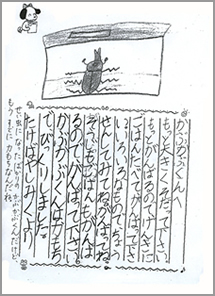 かぶかぶくんへ
もっと大きくなって下さい。
もっとがんばるのでげんきに
ごはんたべてがんばって下さい。
いろいろなもので、ちょう
せんしてみてねがんばってね
ぞ
るので、がんばって下さい
かぶかぶくんは、力もち
でびっくりしました。
たけばやしみくより
せい虫になったばかりのかぶかぶくんだけど、
もうすでに力もちなんだね。